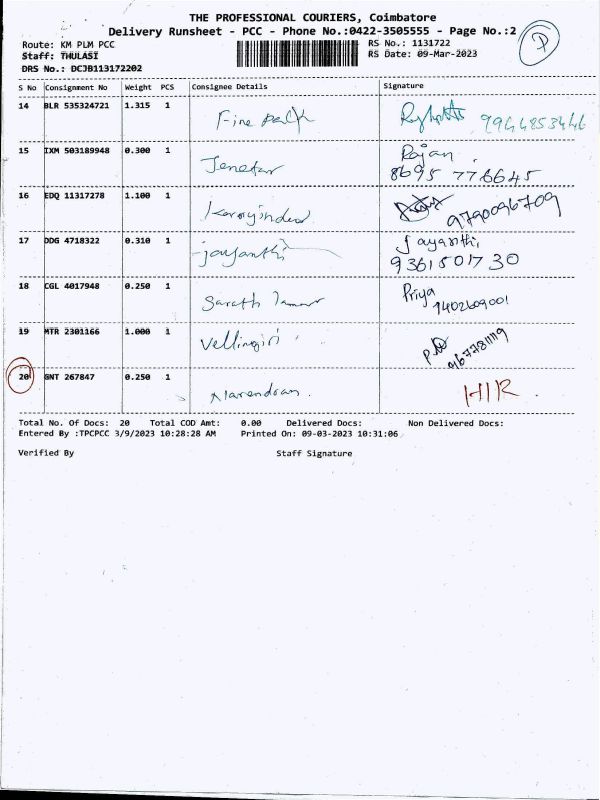 THE PROFESSIONAL COURIERS, Coimbatore
Delivery Runsheet - PCC - Phone No.:0422-3505555 - Page No.:2
P
Route: KM PLM PCC
RS No.: 1131722
Staff: THULASI
RS Date: 09-Mar-2023
DRS No.: DCJB113172202
S No Consignment No Weight PCS Consignee Details Signature
14 BLR 535324721 1.315 1 Fine pack 9944853446
15 IXM 503189948 0.300 1 Rajan
8695 776645
16 EDQ 11317278 1.100 1 9790096709
17 DDG 4718322 0.310 1 jayanthi Jayanthi
9361501730
18 CGL 4017948 0.250 1 Priya
7402609001
19 MTR 2301166 1.000 1 Vellingiri 9677811119
20 GNT 267847 0.250 1 Narendran. HIR
Total No. Of Docs: 20 Total COD Amt: 0.00 Delivered Docs: Non Delivered Docs:
Entered By :TPCPCC 3/9/2023 10:28:28 AM Printed On: 09-03-2023 10:31:06
Verified By Staff Signature